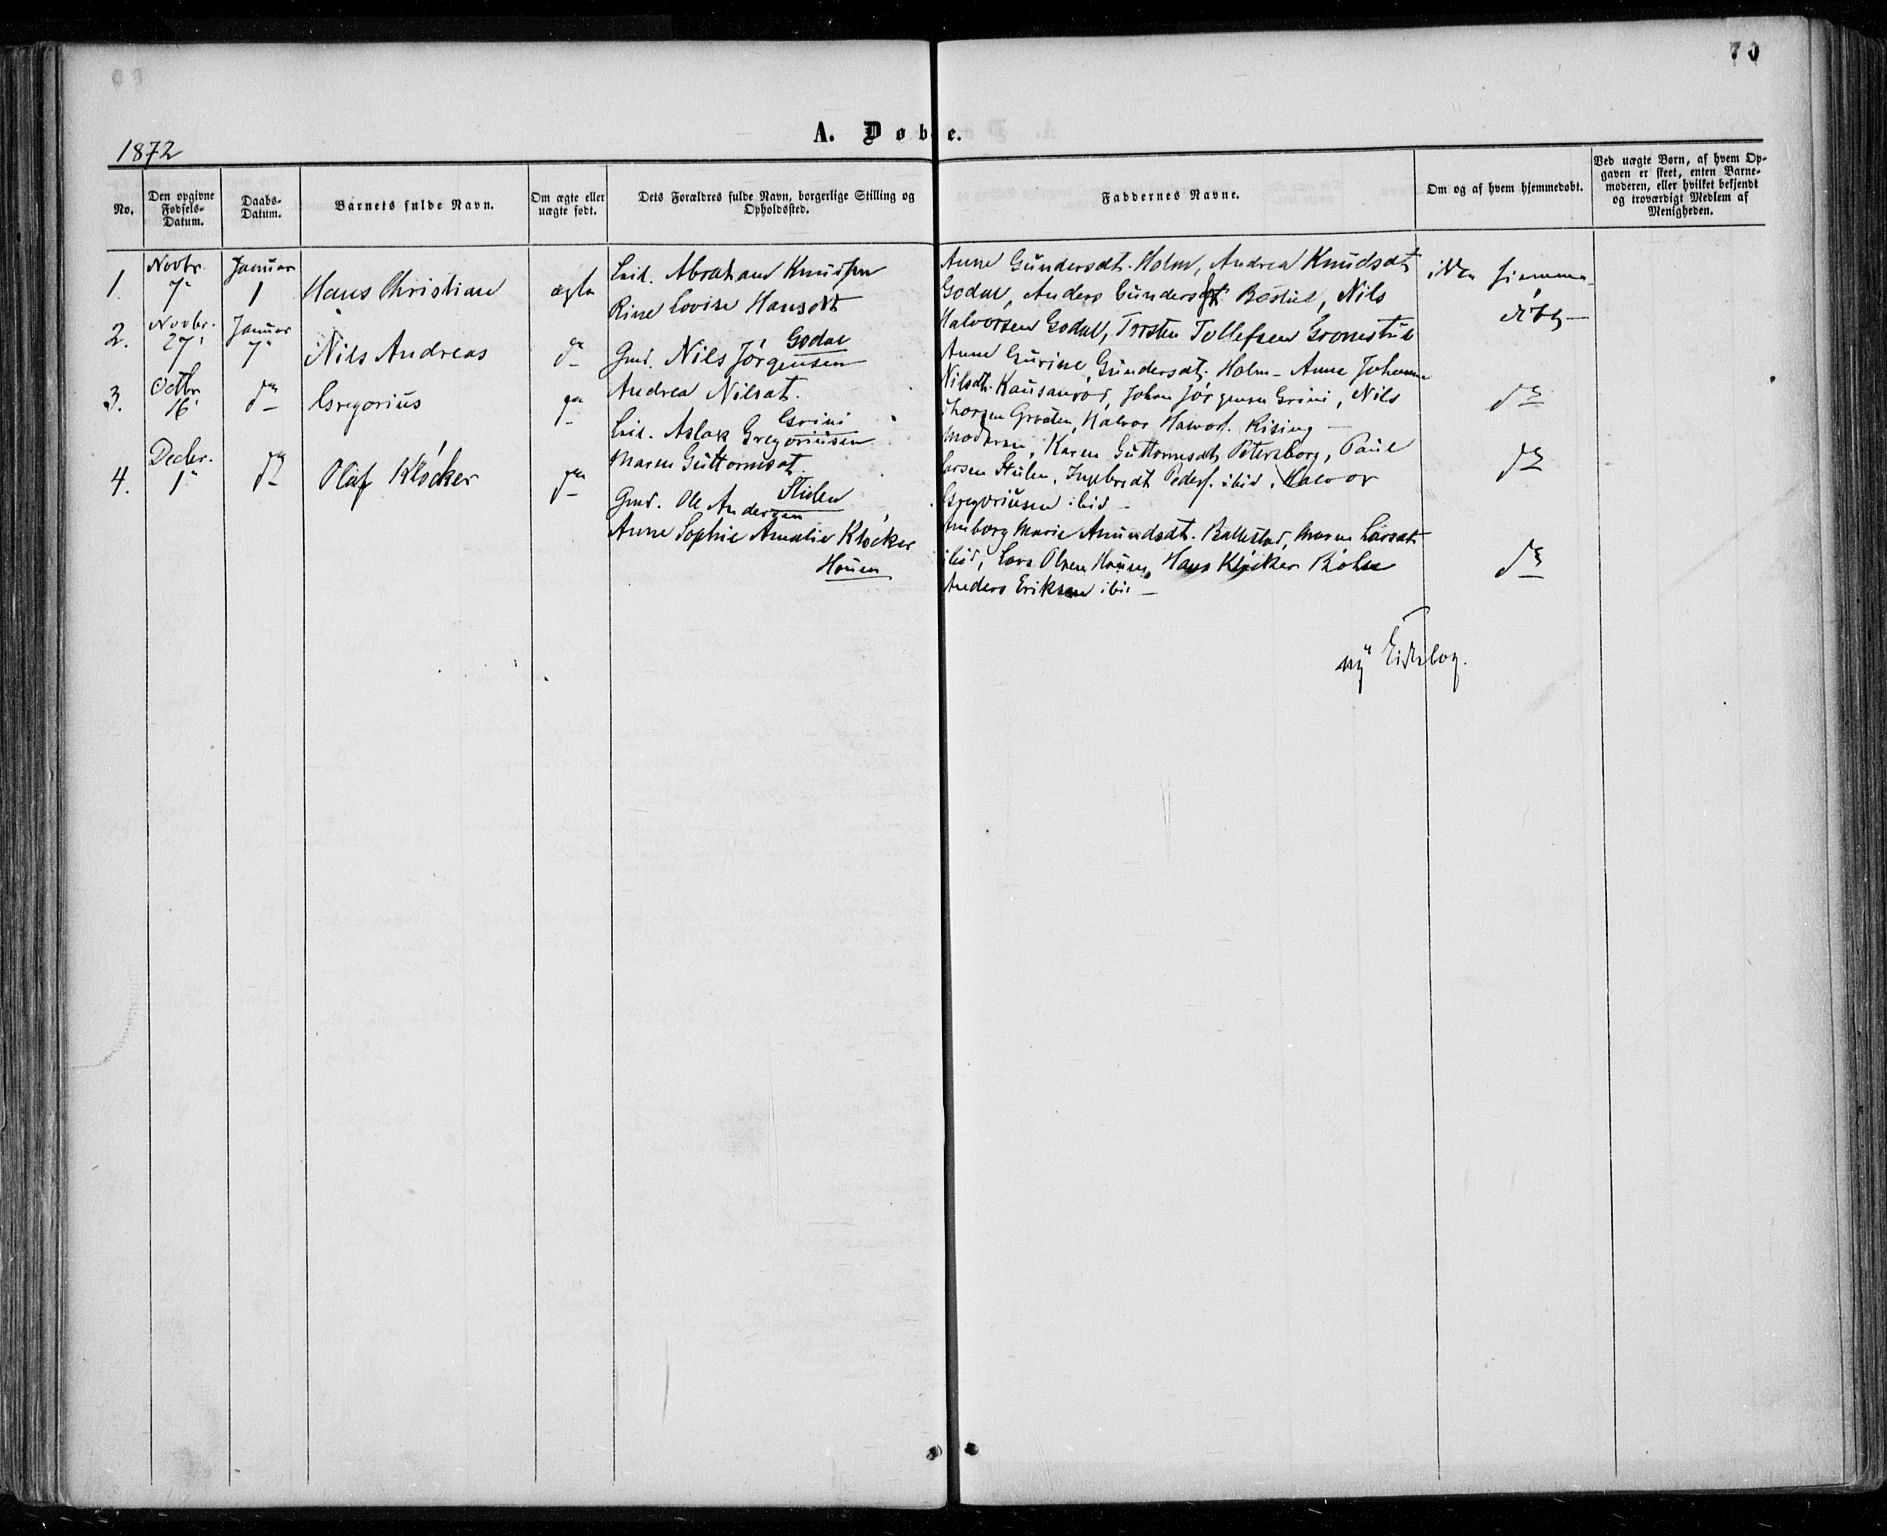 70
A. Døbte.
1872
No.
Den opgivne Fødsels-Datum.
Daabs-Datum.
Barnets fulde Navn.
Om ægte eller uægte født.
Dets Forældres fulde Navn, borgerlige Stilling og Opholdssted.
Faddernes Navne.
Om og af hvem hjemmedøbt.
Ved uægte Børn, af hvem Op-
gaven er skeet, enten Barne-
moderen, eller hvilket bekjendt
og troværdigt Medlem af
Menigheden.
1. Novbr. 7 Januar 1 Hans Christian ægte
Abraham Knudsen
Lovise Hansdt
Godal
Anne Gundersdt. Holm, Andrea Knudsdt
Godal, Anders Nils
Halvorsen Godal, Torsten Tollefsen Gromstul
ikke hjemme
døbt
2. Novbr. 27 Januar 7 Nils Andreas do
Gmd. Nils Jörgensen
Andrea Nilsdt.
Grini
Anne Gurine Gundersdt. Holm - Anne Johanne
Nilsdt. Johan Jörgensen Grini, Nils
Halvor Halvors. Rising -
do
3. Octbr. 16 do Gregorius do
Aslak Gregoriusen
Maren Guttormsdt.
Stulen
Moderen, Karen Guttormsdt Petersborg, Paul
Larsen Stulen, Ingebredt Peders. ibid, Halvor
Gregoriusen ibid -
do
4. Decbr. 1 do Olaf Klöcker do
Gmd. Ole Andersen
Anne Sophie Amalie Klöcker
Houen
Marie Amundsdt. Ballestad, Maren Larsdt
ibid, Lars Olsen Houen, Hans Klöcker
Anders Eriksen ibid -
do
ny